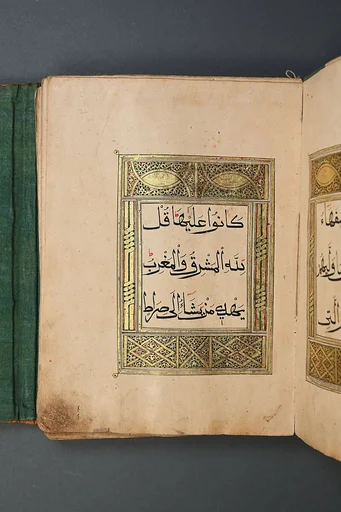 سفهاء
التي
كَانُوا عَلَيْهَا قُل
لِلَّهِ الْمَشْرِقُ وَالْمَغْرِبُ
يَهْدِي مَنْ يَشَاءُ إِلَى صِرَاطٍ